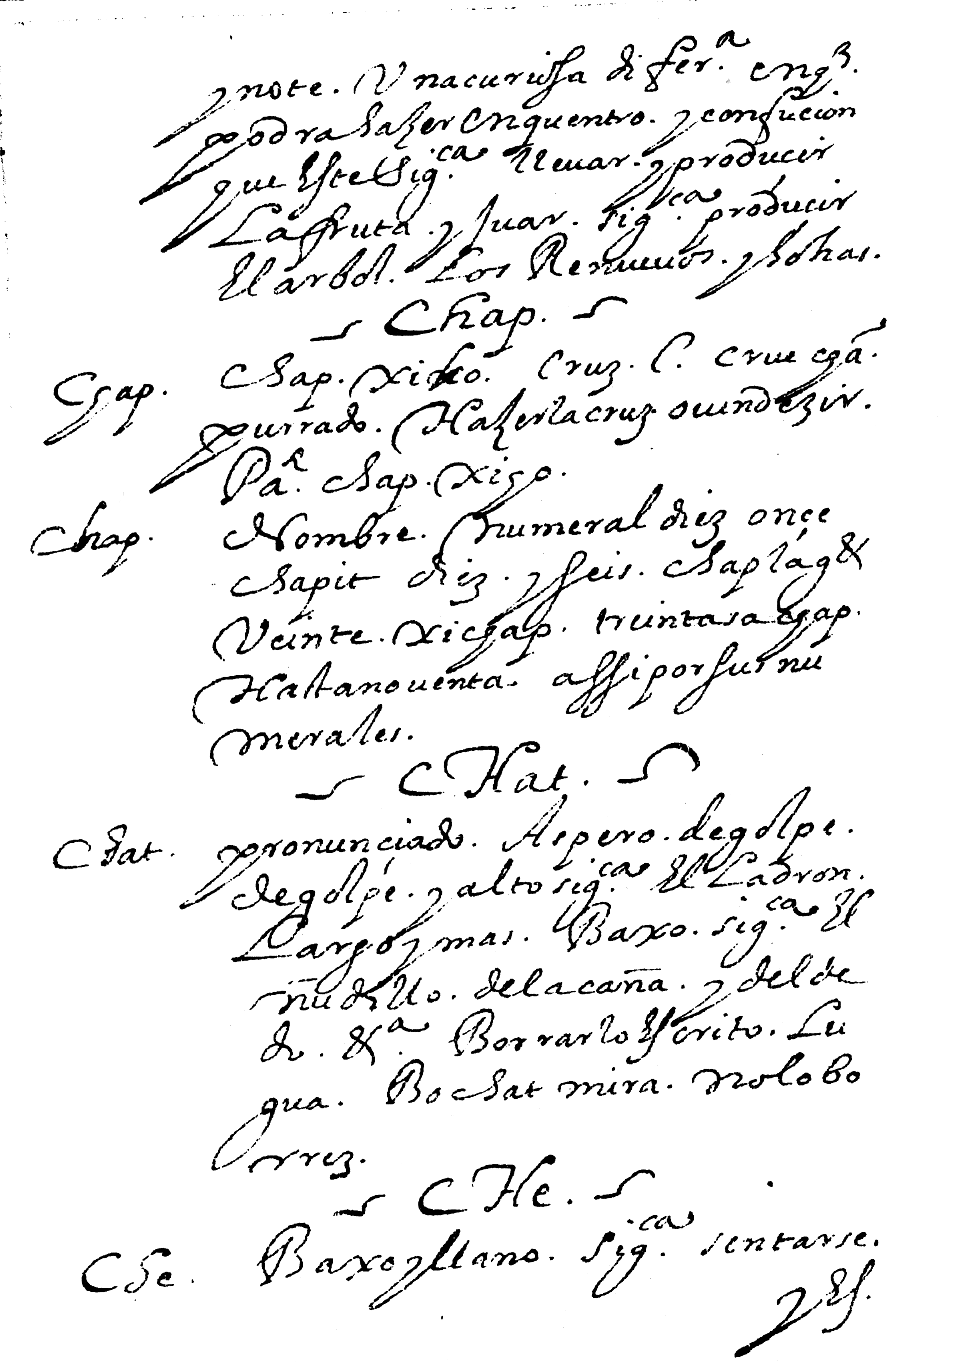 y note. Una curiosa difer.ª enq̃.
podra hazer enquentro. y confucion
que Este Sig.ca llevar. y producir
La fruta. y Juar. sig.ca producir
El arbol. Los Renuevos. y hohas.
Chap.
Chap. Chap. Xihco. Cruz. l. crue
purrado. Hazer la cruz o vindezir.
Pa.R chap. Xigo.
Chap. Nombre. numeral diez onçe
chapit diez. y seis. chaplag &
Veinte. xichap. treinta sa chap.
Hasta noventa. assi por sus nu
merales.
CHat.
Chat. pronunciado. Aspero. de golpe.
de golpe. y alto sig.ca El Ladron.
Largo y mas. Baxo. sig.ca El
ñudillo. de la caña. y del de
do. &.ª Borrar lo Escrito. Lu
gua. Bochat mira. no lo bo
rrez.
CHe.
Che. Baxo y llano. Sig.ca sentarse.
y Es.